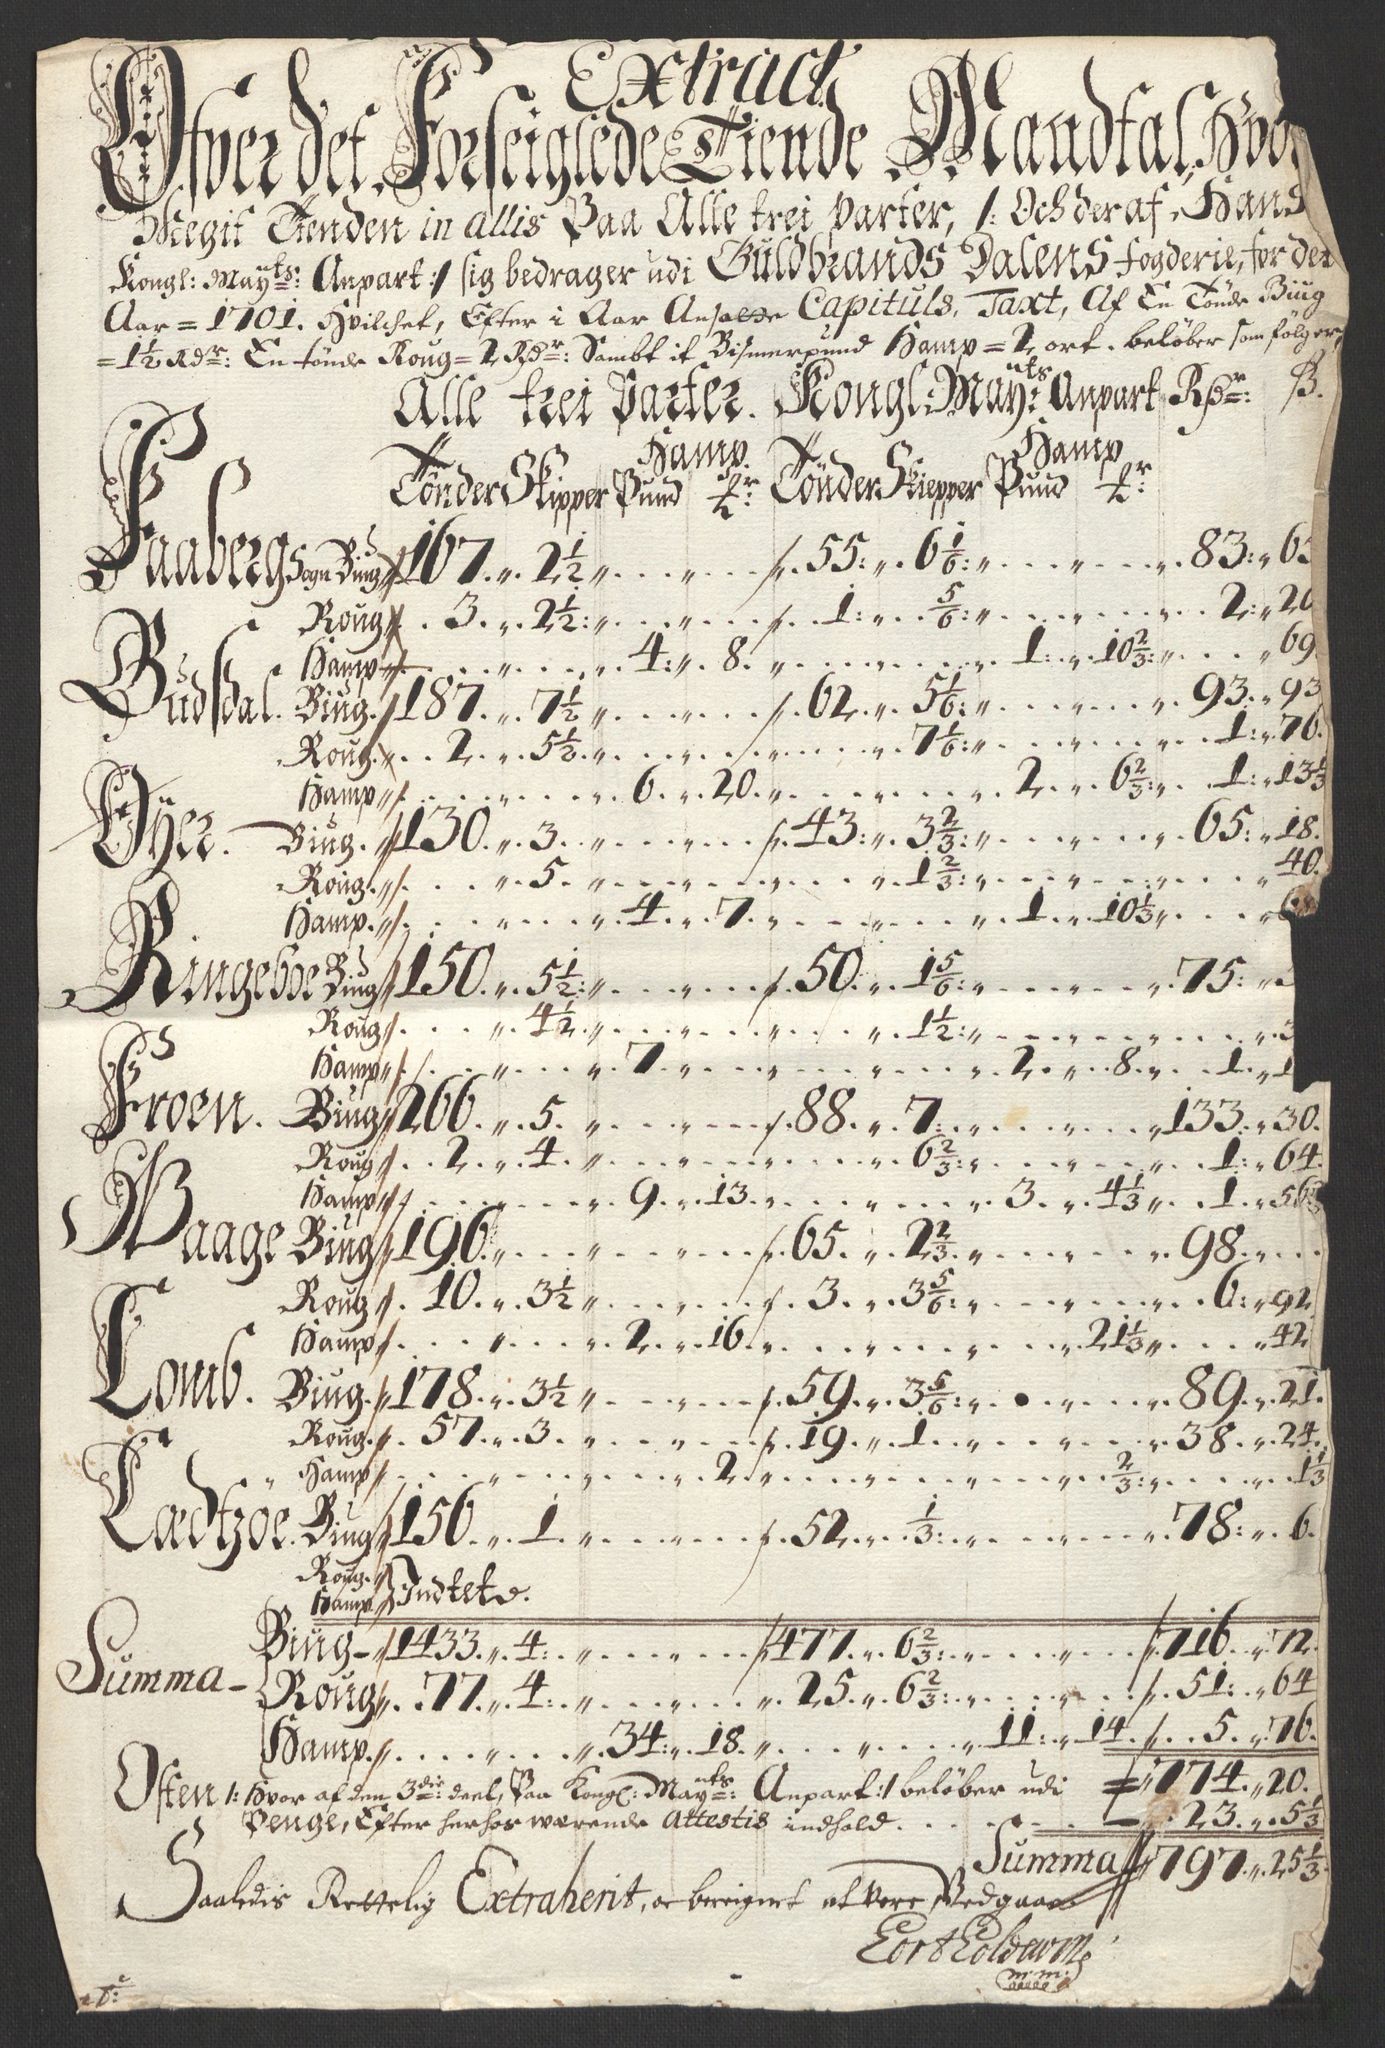 Extract
Ofver det Forseiglede Tiende Mandtal, Hvor
Megit Tienden in allis Paa Alle trei Parter, /: Och deraf Hans
Kongl: Mayts: Anpart :/ sig bedrager udi Guldbrands Dalens fogderie, for det
Aar = 1701. Hvilchet, Efter i Aar Ansatte Capituls Taxt, Af En Tönde Biug
= 1½ Rdr: En tönde Roug = 2 Rdr: Sambt it Bismerpund Hamp = 2 ort. belöber som fölger,
Alle trei Parter. Kongl: Mayts: Anpart Rdr: ß.
Hamp Hamp
Tönder Skipper Pund Tönder Skiepper Pund
Faaberg Sogn Biug 167. 2½ 55: 6 1/6 83:
Roug 3. 2½ 1: 5/6 2:
Hamp 4: 8. 1: 10 2/3 69.
Gudsdal. Biug. 187. 7½ 62. 5 1/6 93. 93
Roug. 2. 5½ 7 1/6 1: 76.
Hamp 6. 20. 2. 6 2/3 1: 13 1/3
Öyer. Biug. 130. 3. 43: 3 2/3 65: 18.
Roug. 5. 1 2/3 40.
Hamp. 4. 7. 1. 10 1/3
Ringeboe Biug 150. 5½ 50. 1 5/6 75:
Roug 4½ 1½
Hamp 7. 2. 8. 1.
Froen. Biug 266. 5. 88. 7: 133. 30.
Roug 2. 4. 6 2/3 1: 64.
Hamp 9. 13. 3. 4 1/3 1. 56
Waage Biug 196. 65. 2 2/3 98.
Roug 10. 3½ 3. 3 5/6 6: 92
Hamp 2. 16. 21 1/3 42
Lomb. Biug. 178. 3½ 59. 3 5/6 89. 21.
Roug. 57. 3. 19. 1. 38. 24.
Hamp 2. 2/3 1 1/3
Lædtzöe. Biug 156. 1. 52. 1/3 78: 6.
Roug.
Hamp Indtet.
Biug 1433. 4: 477. 6 2/3 716. 72.
Summa Roug 77. 4: 25. 6 2/3 51: 64
Hamp. 34: 18. 11: 14. 5. 76.
Osten /: Hvor af den 3die: deel, Paa Kongl: Mayts: Anpart :/ belöber udi 774. 20.
Penge, Efter herhos værende Attestis indhold. 23. 5 1/3
Summa 797. 25 1/3
Saaledis Rettelig Extraherit, at vere Vedgaar